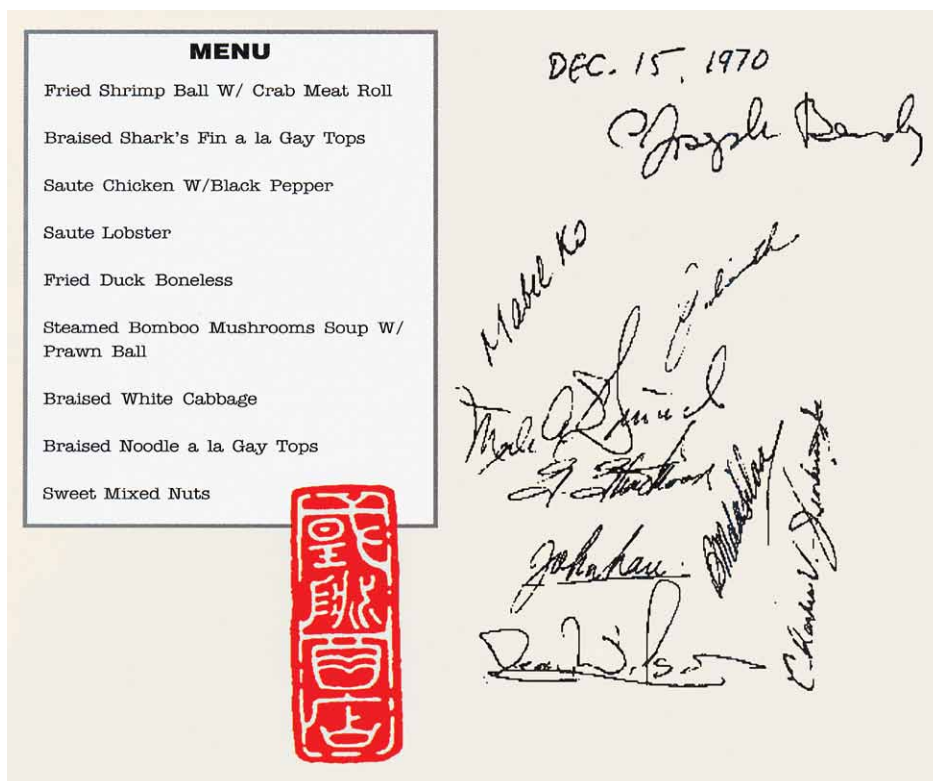 MENU
Fried Shrimp Ball W/ Crab Meat Roll
Braised Shark's Fin a la Gay Tops
Saute Chicken W/Black Pepper
Saute Lobster
Fried Duck Boneless
Steamed Bomboo Mushrooms Soup W/
Prawn Ball
Braised White Cabbage
Braised Noodle a la Gay Tops
Sweet Mixed Nuts
DEC. 15, 1970
Joseph
Mabel Ko
John
Dean Wilson
Charles V.